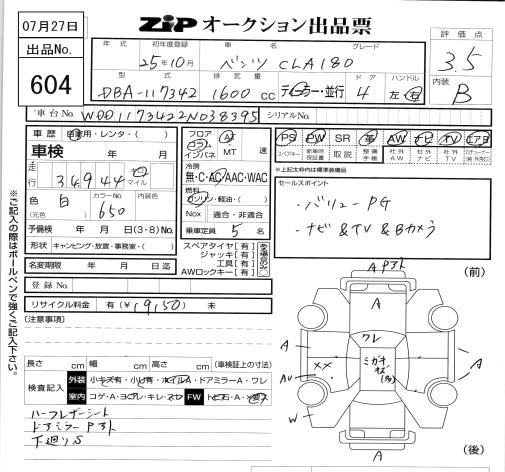 07月27日
ZIP オークション出品票
出品No.
604
年式 初年度登録 車名 グレード
25年10月 ベンツ CLA180
型式 排気量 ドア ハンドル
DBA-117342 1600cc デーラー・並行 4 左・右
評価点
3.5
内装
B
車台No. WDD1173422N038395
シリアルNo.
車歴 自家用・レンタ・( )
車検 年 月
走行 34944 キロ マイル
色 白 カラーNo.
(元色) 650
予備検 年 月 日(3・8)No.
形状 キャンピング・放壹・事務室・( )
名変期限 年 月 日迄
登録No.
リサイクル料金 有(¥19,150) 未
フロア コラム インパネ
AT MT 速
冷房
無・C・AC・AAC・WAC
燃料
ガソリン・軽油・( )
Nox 適合・非適合
乗車定員 5 名
スペアタイヤ[有]
ジャッキ[有]
工具[有]
AWロックキー[有]
PS PW SR 革 AW ナビ TV エアB
スペアキー 新車時保証書 取説 整備手帳 社外AW 社外ナビ 社外TV
※上記太枠内は標準装備品
セールスポイント
・バリューPG
・ナビ&TV&Bカメラ
※ご記入の際はボールペンで強くご記入下さい。
[注意事項]
長さ cm 幅 cm 高さ cm (車検証上の寸法)
検査記入
外装 小キズ有・小凹有・ホイルA・ドアミラーA・ワレ
室内 コゲ・A・ヨゴレ・キレ・スレ FW トビ石・A・
ハーフレザーシート
ドアミラーPアト
下廻りS
(前)
A Pアト
A
ワレ
ミガキ
キズ
(多)
A
XX
AU
W
A
A
A
(後)